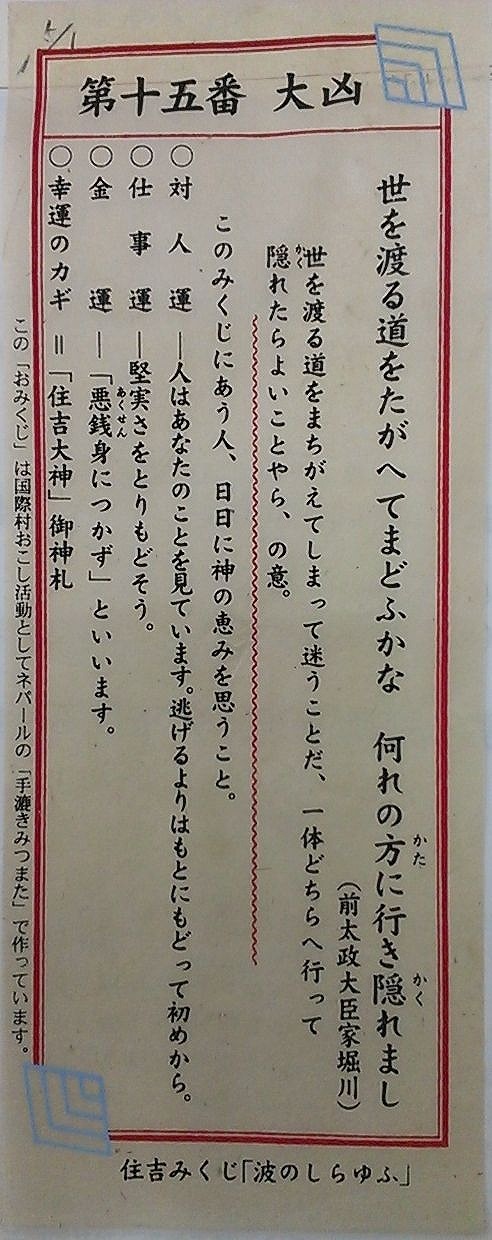 5/1
第十五番 大凶
世を渡る道をたがへてまどふかな 何れの方に行き隠れまし
かた
かく
(前太政大臣家堀川)
世を渡る道をまちがえてしまって迷うことだ、一体どちらへ行って
隠れたらよいことやら、の意。
かく
このみくじにあう人、日日に神の恵みを思うこと。
○対人運―人はあなたのことを見ています。逃げるよりはもとにもどって初めから。
○仕事運―堅実さをとりもどそう。
○金運―「悪銭身につかず」といいます。
あくせん
○幸運のカギ=「住吉大神」御神札
この「おみくじ」は国際村おこし活動としてネパールの「手漉きみつまた」で作っています。
住吉みくじ「波のしらゆふ」